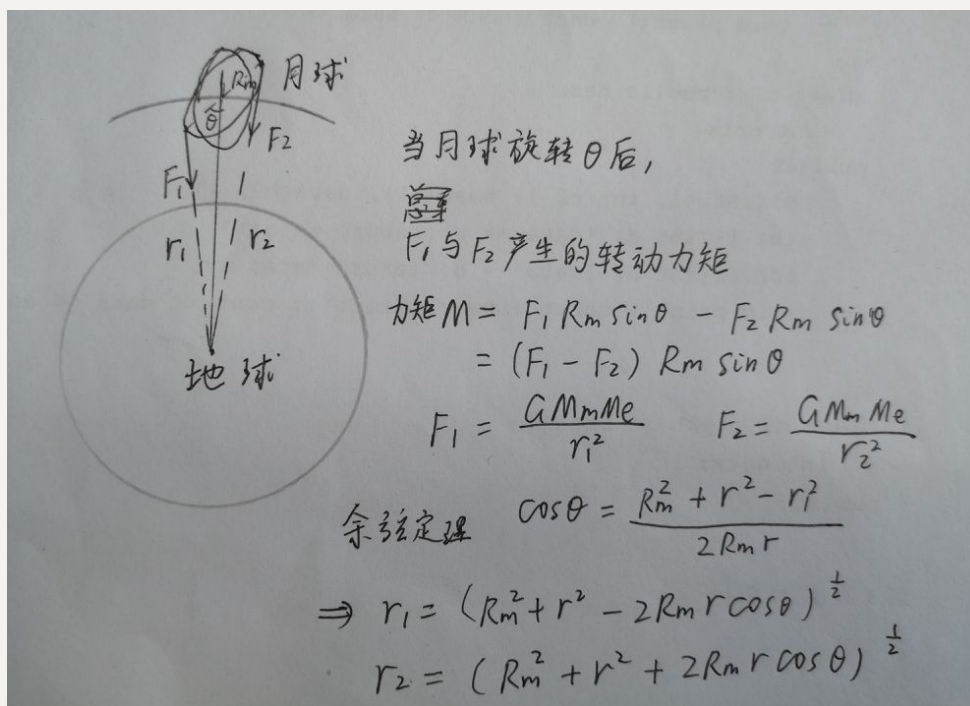 月球
Rm
θ
F₂
F₁
r₁
r₂
地球
当月球旋转θ后,
F₁与F₂产生的转动力矩
力矩M = F₁ Rm sinθ - F₂ Rm sinθ
= (F₁ - F₂) Rm sinθ
F₁ = GMmMe / r₁² F₂ = GMmMe / r₂²
余弦定理 cosθ = (Rm² + r² - r₁²) / 2Rmr
⇒ r₁ = (Rm² + r² - 2Rm r cosθ)^½
r₂ = (Rm² + r² + 2Rm r cosθ)^½